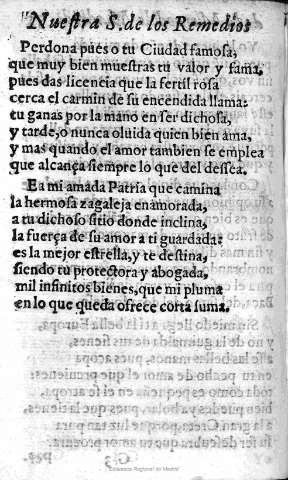 Nuestra S. de los Remedios
Perdona pues o tu Ciudad famosa,
que muy bien muestras tu valor y fama,
pues das licencia que la fertil rosa
cerca el carmin de su encendida llama:
tu ganas por la mano en ser dichosa,
y tarde, o nunca oluida quien bien ama,
y mas quando el amor tambien se emplea
que alcança siempre lo que del dessea.
Ea mi amada Patria que camina
la hermosa zagaleja enamorada,
a tu dichoso sitio donde inclina,
la fuerça de su amor a ti guardada:
es la mejor estrella, y te destina,
siendo tu protectora y abogada,
mil infinitos bienes, que mi pluma
en lo que queda ofrece corta suma.
Biblioteca Regional de Madrid